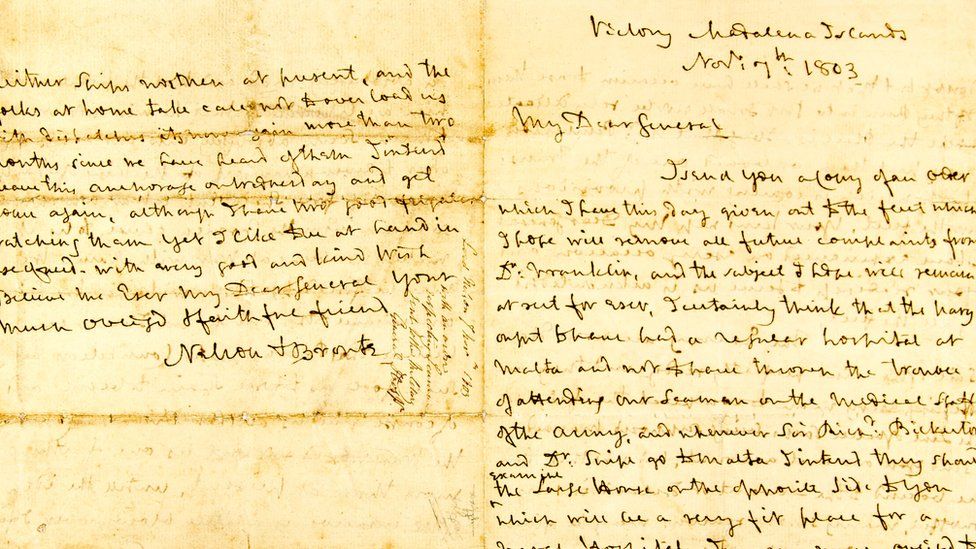 Victory Madalena Islands
Novr. 7th. 1803
My Dear General
I send you a Copy of an order
which I have this day given out to the fleet which
I hope will remove all future complaints from
Dr. Franklin, and the subject I hope will remain
at rest for ever, I certainly think that the Navy
ought to have had a regular hospital at
Malta and not to have thrown the trouble
of attending our Seamen on the Medical Staff
of the Army, and whenever Sir Richd. Bickerton
and Dr. Snipe go to Malta I intend they should
examine
the Large House on the opposite side to you
which will be a very fit place for a
Naval Hospital
either Ships nor Men at present, and the
folks at home take care not to over load us
with dispatches its now again more than two
months since we have heard of them I intend
leave this anchorage on Wednesday and get
again, although I have two good frigates
watching them yet I like to be at hand in
with every good and kind Wish
Believe me Ever My Dear General Your
much obliged & faithful friend
Nelson & Bronte
Lord Nelson 7 Novr. 1803
with an order
respecting Seamen
sent to the Military
General